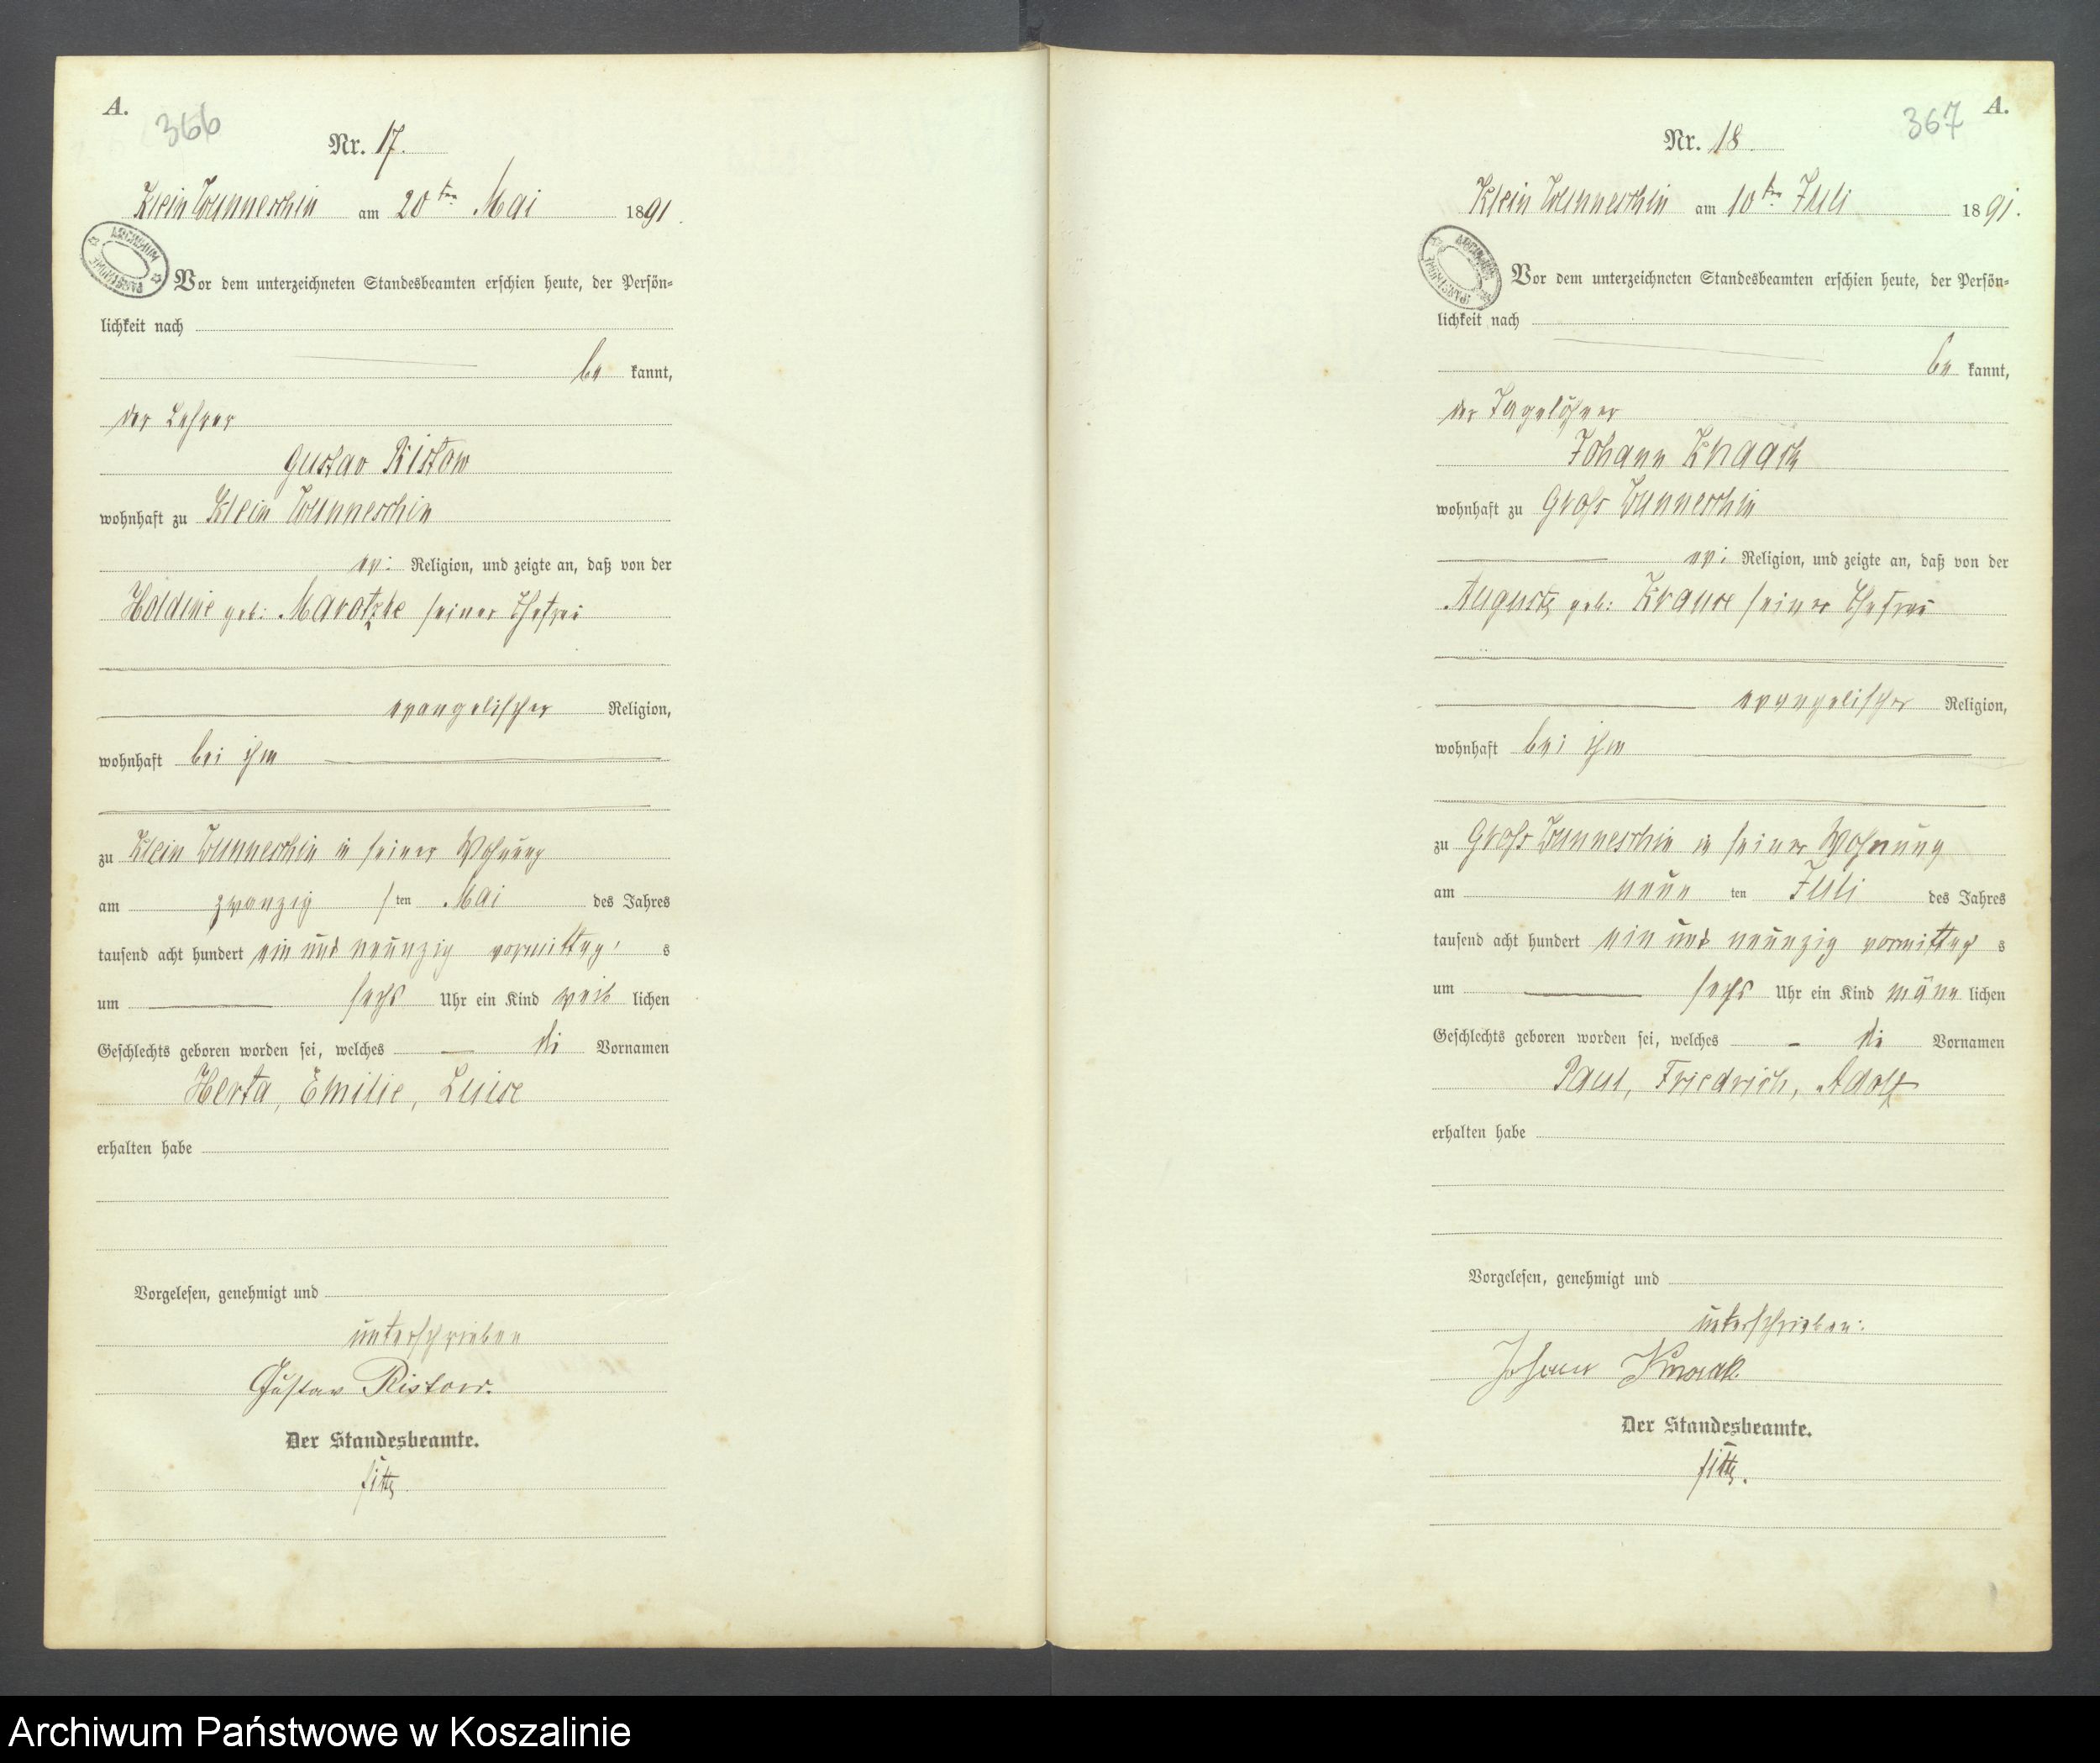 A.
366
Nr. 17.
Klein Wunneschin am 20ten Mai 1891.
ARCHIWUM PAŃSTWOWE
Vor dem unterzeichneten Standesbeamten erschien heute, der Persön-
lichkeit nach
be kannt,
der Lehrer
Gustav Ristow
wohnhaft zu Klein Wunneschin
ev: Religion, und zeigte an, daß von der
Holdine geb: Marotzke seiner Ehefrau
evangelischer Religion,
wohnhaft bei ihm
zu Klein Wunneschin in seiner Wohnung
am zwanzig sten Mai des Jahres
tausend acht hundert ein und neunzig vormittag s
um sechs Uhr ein Kind weib lichen
Geschlechts geboren worden sei, welches die Vornamen
Herta, Emilie, Luise
erhalten habe
Vorgelesen, genehmigt und
unterschrieben
Gustav Ristow.
Der Standesbeamte.
A.
367
Nr. 18.
Klein Wunneschin am 10ten Juli 1891.
ARCHIWUM PAŃSTWOWE
Vor dem unterzeichneten Standesbeamten erschien heute, der Persön-
lichkeit nach
be kannt,
der Tagelöhner
Johann Knaack
wohnhaft zu Groß Wunneschin
ev: Religion, und zeigte an, daß von der
Auguste geb: Krause seiner Ehefrau
evangelischer Religion,
wohnhaft bei ihm
zu Groß Wunneschin in seiner Wohnung
am neun ten Juli des Jahres
tausend acht hundert ein und neunzig vormittag s
um sechs Uhr ein Kind männ lichen
Geschlechts geboren worden sei, welches die Vornamen
Paul, Friedrich, Adolf
erhalten habe
Vorgelesen, genehmigt und
unterschrieben:
Johann
Der Standesbeamte.
Archiwum Państwowe w Koszalinie